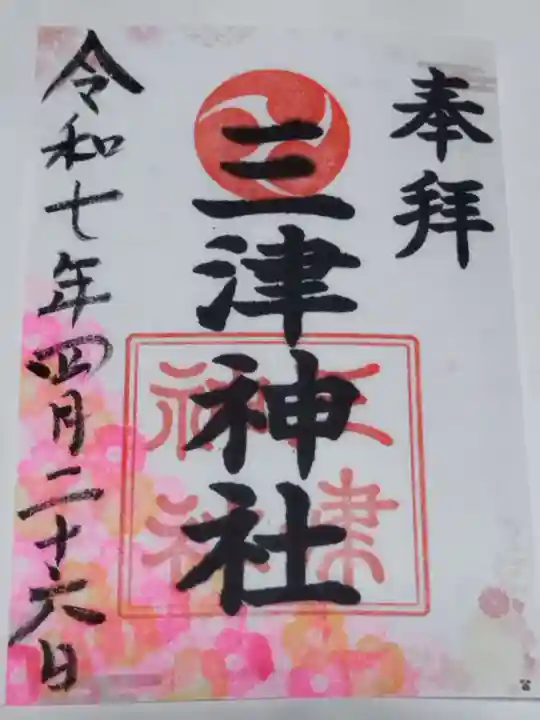 奉拝
三津神社
三津神社
令和七年四月二十六日